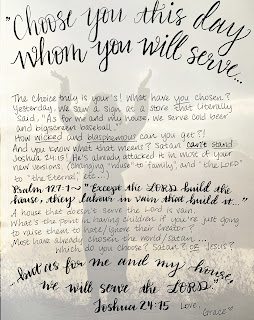 "Choose you this day
whom you will serve...
The choice truly is your's! What have you chosen?
Yesterday, we saw a sign at a store that literally
said, "As for me and my house, we serve cold beer
and bigscreen baseball."
How wicked and blasphemous can you get?!
And you know what that means? Satan can't stand
Joshua 24:15! He's already attacked it in most of your
new versions, (changing "house" to "family", and "the LORD"
to "the Eternal", etc...).
Psalm 127:1~ "Except the LORD build the
house, they labour in vain that build it..."
A house that doesn't serve the Lord is vain.
What's the point in having children if you're just going
to raise them to hate/ignore their Creator?
Most have already chosen the world/Satan...
Which do you choose? Satan? Or Jesus?
...but as for me and my house,
we will serve the LORD."
Joshua 24:15
Love, Grace